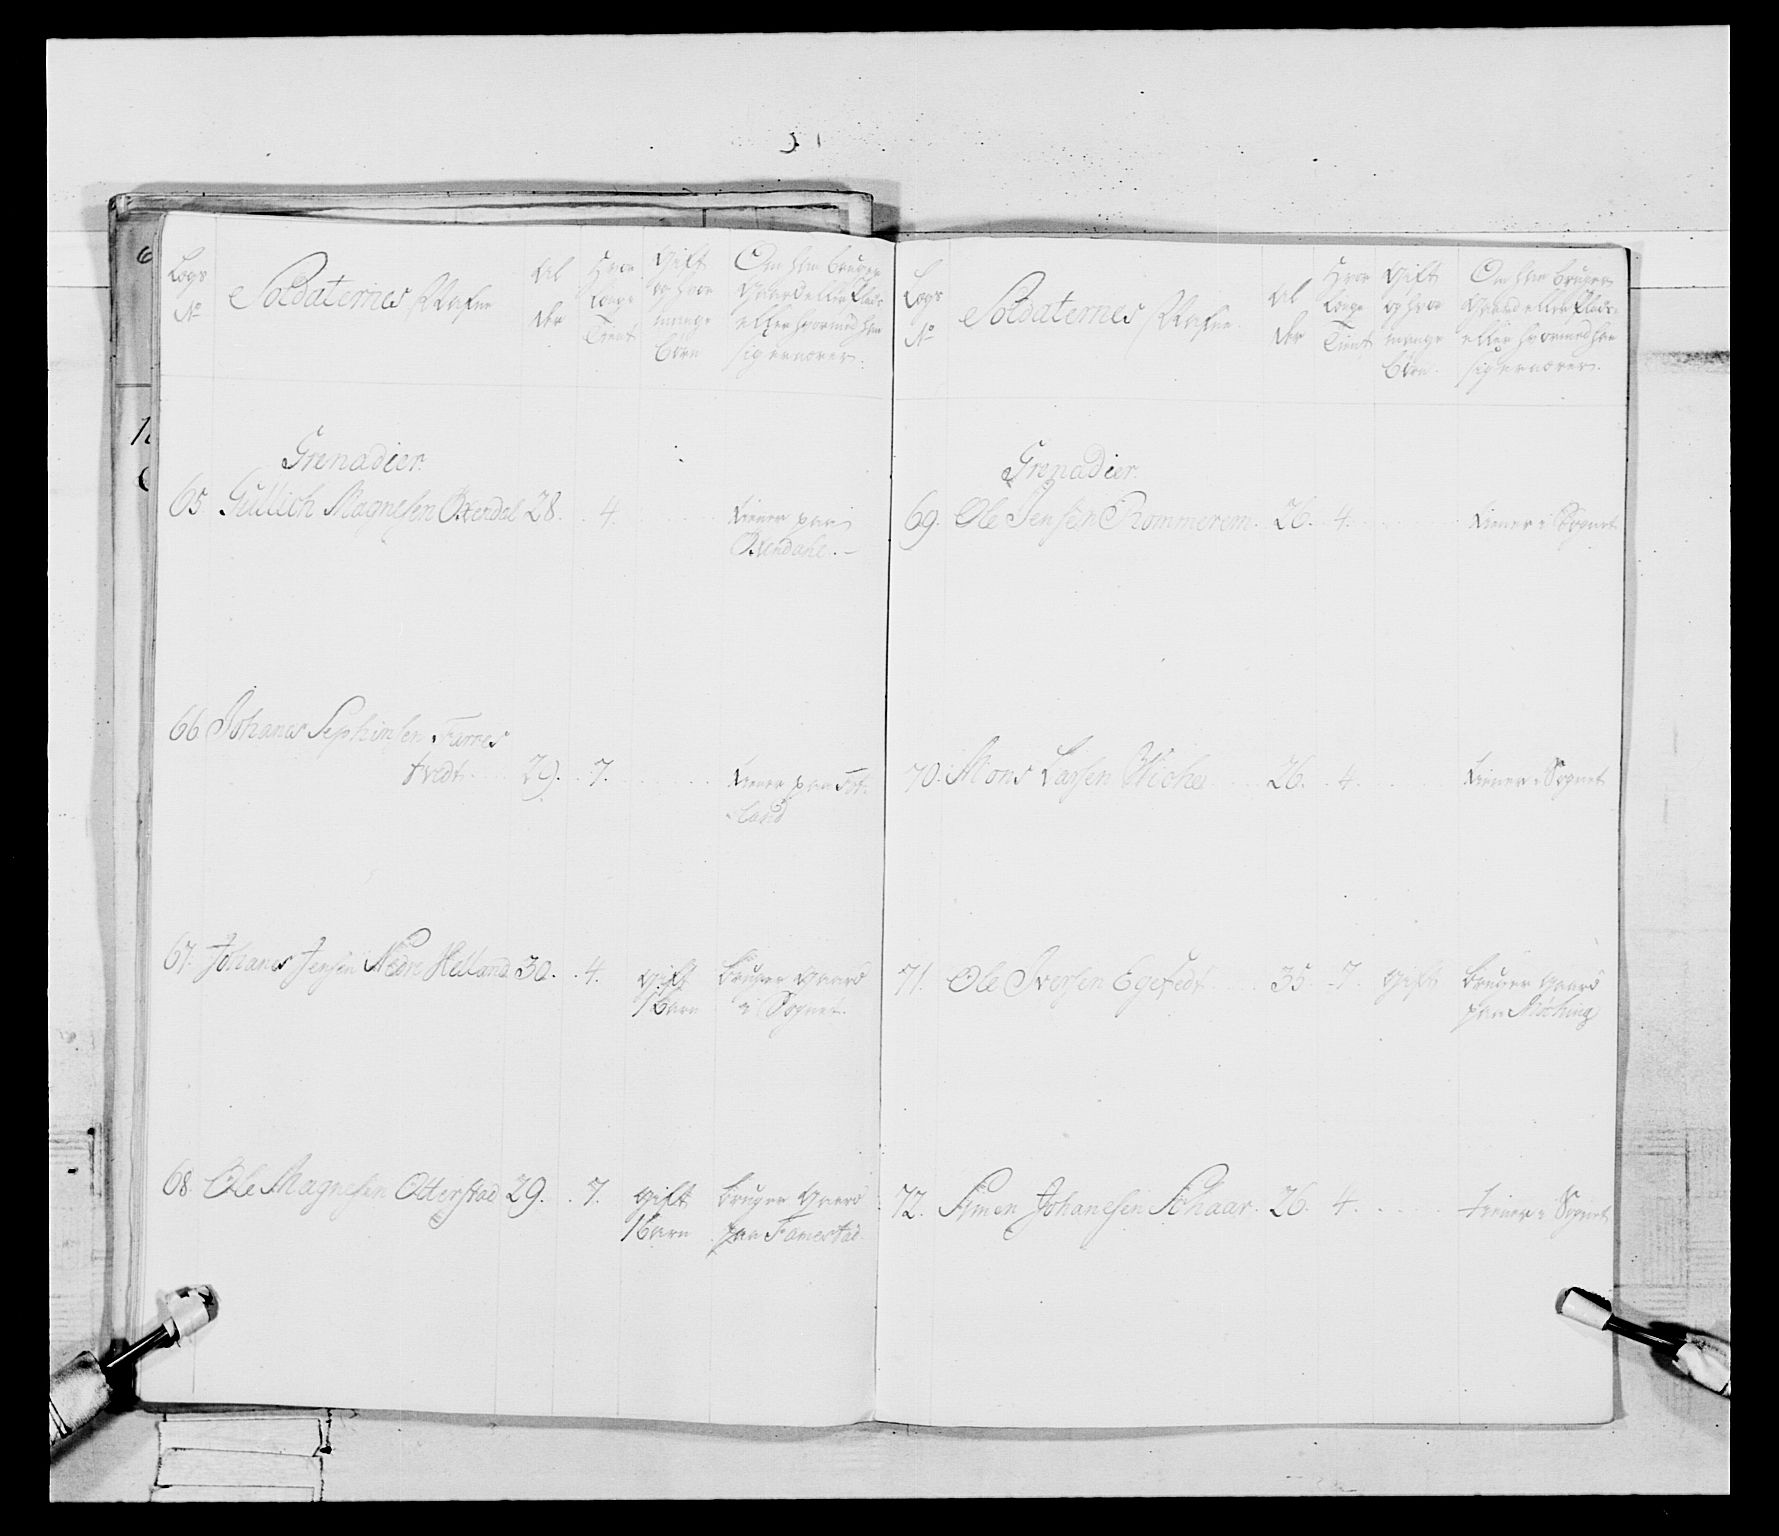 Logs
No
Soldaternes Nafne
Al
der
Hvor
Længe
Tient
Gift
og hvor
mange
børn
Om han bruger
Gaard eller Plads
eller hvormed han
sig ernærer.
Grenadier.
65. Gullich Magnesen Oxendal 28. 4. tiener paa
Oxendahl.
66. Johanes Sephimsen Farres
tvedt 29. 7. tiener paa
land
67. Johanes Jensen Nedre Helland 30. 4. Gift bruger Gaard
1 barn i Sognet.
68. Ole Magnesen Otterstad 29. 7. Gift bruger Gaard
1 barn paa Fonnestad
Logs
No
Soldaternes Nafne
Al
der
Hvor
Længe
Tient
Gift
og hvor
mange
børn.
Om han bruger
Gaard eller Plads
eller hvormed han
sig ernærer.
Grenadier.
69. Ole Jensen Rommerem. 26. 4. tiener i Sognet
70. Mons Larsen Wiche 26. 4. tiener i Sognet
71. Ole Iversen Egetedt 35. 7. Gift bruger Gaard
paa
72. Simen Johanesen Schaar. 26. 4. tiener i Sognet